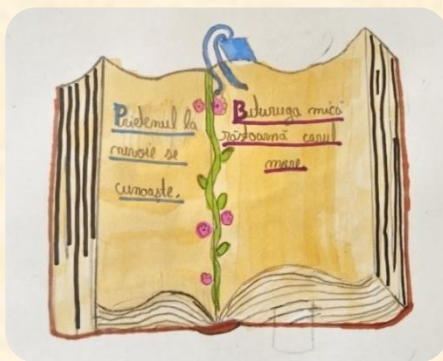 Prietenul la
nevoie se
cunoaște.
Buturuga mică
răstoarnă carul
mare.